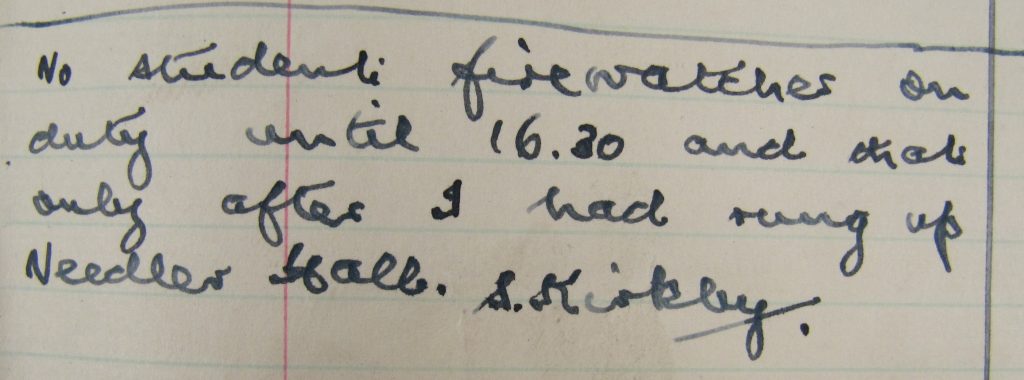 No student firewatcher on
duty until 16.30 and that
only after I had rung up
Needler Hall. S. Kirkby.